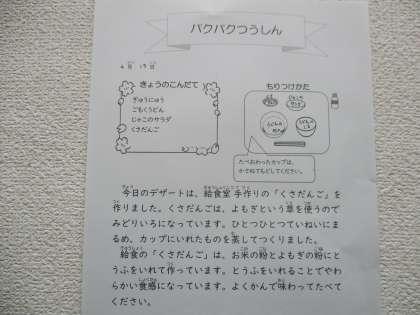 パクパクつうしん
4月 19日
きょうのこんだて
ぎゅうにゅう
ごもくうどん
じゃこのサラダ
くさだんご
もりつけかた
たべおわったカップは、
かさねてもどしてください。
今日のデザートは、給食室手作りの「くさだんご」を
作りました。くさだんごは、よもぎという草を使うので
みどりいろになっています。ひとつひとつていねいにま
るめ、カップにいれたものを蒸してつくりました。
給食の「くさだんご」は、お米の粉とよもぎの粉にと
うふをいれて作っています。とうふをいれることでやわ
らかい食感になっています。よくかんで味わってたべて
ください。